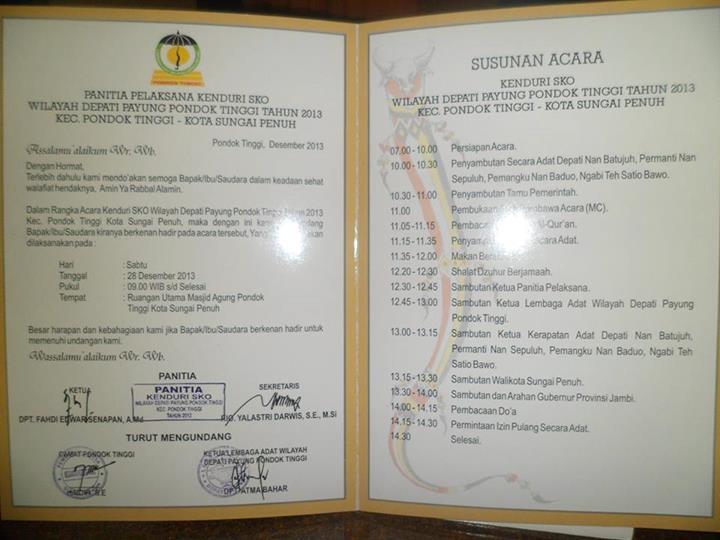 PANITIA PELAKSANA KENDURI SKO
WILAYAH DEPATI PAYUNG PONDOK TINGGI TAHUN 2013
KEC. PONDOK TINGGI - KOTA SUNGAI PENUH
Pondok Tinggi, Desember 2013
Assalamu'alaikum Wr. Wb.
Dengan Hormat,
Terlebih dahulu kami mendo'akan semoga Bapak/Ibu/Saudara dalam keadaan sehat
walafiat hendaknya, Amin Ya Rabbal Alamin.
Dalam Rangka Acara Kenduri SKO Wilayah Depati Payung Pondok Tinggi Tahun 2013
Kec. Pondok Tinggi Kota Sungai Penuh, maka dengan ini
Bapak/Ibu/Saudara kiranya berkenan hadir pada acara tersebut,
dilaksanakan pada :
Hari : Sabtu
Tanggal : 28 Desember 2013
Pukul : 09.00 WIB s/d Selesai
Tempat : Ruangan Utama Masjid Agung Pondok
Tinggi Kota Sungai Penuh
Besar harapan dan kebahagiaan kami jika Bapak/Ibu/Saudara berkenan hadir untuk
memenuhi undangan kami.
Wassalamu'alaikum Wr. Wb.
PANITIA
KETUA
SEKRETARIS
PANITIA
KENDURI SKO
WILAYAH DEPATI PAYUNG PONDOK TINGGI
KEC. PONDOK TINGGI
DPT. FAHDI EDWAR SENAPAN, A.Md
RIO. YALASTRI DARWIS, S.E., M.Si
TURUT MENGUNDANG
CAMAT PONDOK TINGGI
KETUA LEMBAGA ADAT WILAYAH
DEPATI PAYUNG PONDOK TINGGI
DPT. ATMA BAHAR
SUSUNAN ACARA
KENDURI SKO
WILAYAH DEPATI PAYUNG PONDOK TINGGI TAHUN 2013
KEC. PONDOK TINGGI - KOTA SUNGAI PENUH
07.00 - 10.00 Persiapan Acara.
10.00 - 10.30 Penyambutan Secara Adat Depati Nan Batujuh, Permanti Nan
Sepuluh, Pemangku Nan Baduo, Ngabi Teh Satio Bawo.
10.30 - 11.00 Penyambutan Tamu Pemerintah.
11.00 Pembukaan Acara (MC).
11.05 - 11.15 Al-Qur'an.
11.15 - 11.35 Secara Adat.
11.35 - 12.00 Makan
12.20 - 12.30 Shalat Dzuhur Berjamaah.
12.30 - 12.45 Sambutan Ketua Panitia Pelaksana.
12.45 - 13.00 Sambutan Ketua Lembaga Adat Wilayah Depati Payung
Pondok Tinggi.
13.00 - 13.15 Sambutan Ketua Kerapatan Adat Depati Nan Batujuh,
Permanti Nan Sepuluh, Pemangku Nan Baduo, Ngabi Teh
Satio Bawo.
13.15 - 13.30 Sambutan Walikota Sungai Penuh.
13.30 - 14.00 Sambutan dan Arahan Gubernur Provinsi Jambi.
14.00 - 14.15 Pembacaan Do'a
14.15 - 14.30 Permintaan Izin Pulang Secara Adat.
14.30 Selesai.